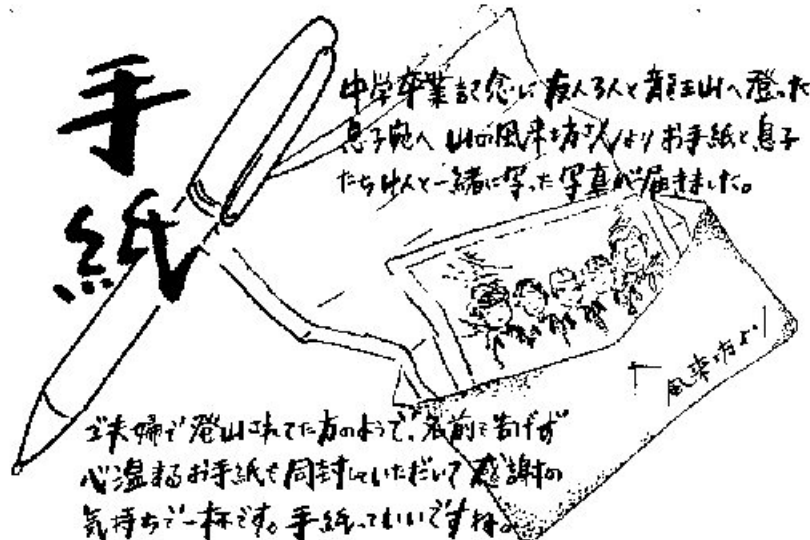 手紙
中学卒業記念に友人3人と竜王山へ登った
息子宛へ 山の風来坊さんよりお手紙と息子
たち4人と一緒に写った写真が届きました。
風来坊より
ご夫婦で登山されてた方のようで、名前も告げず
心温まるお手紙も同封していただいて感謝の
気持ちで一杯です。手紙っていいですね。